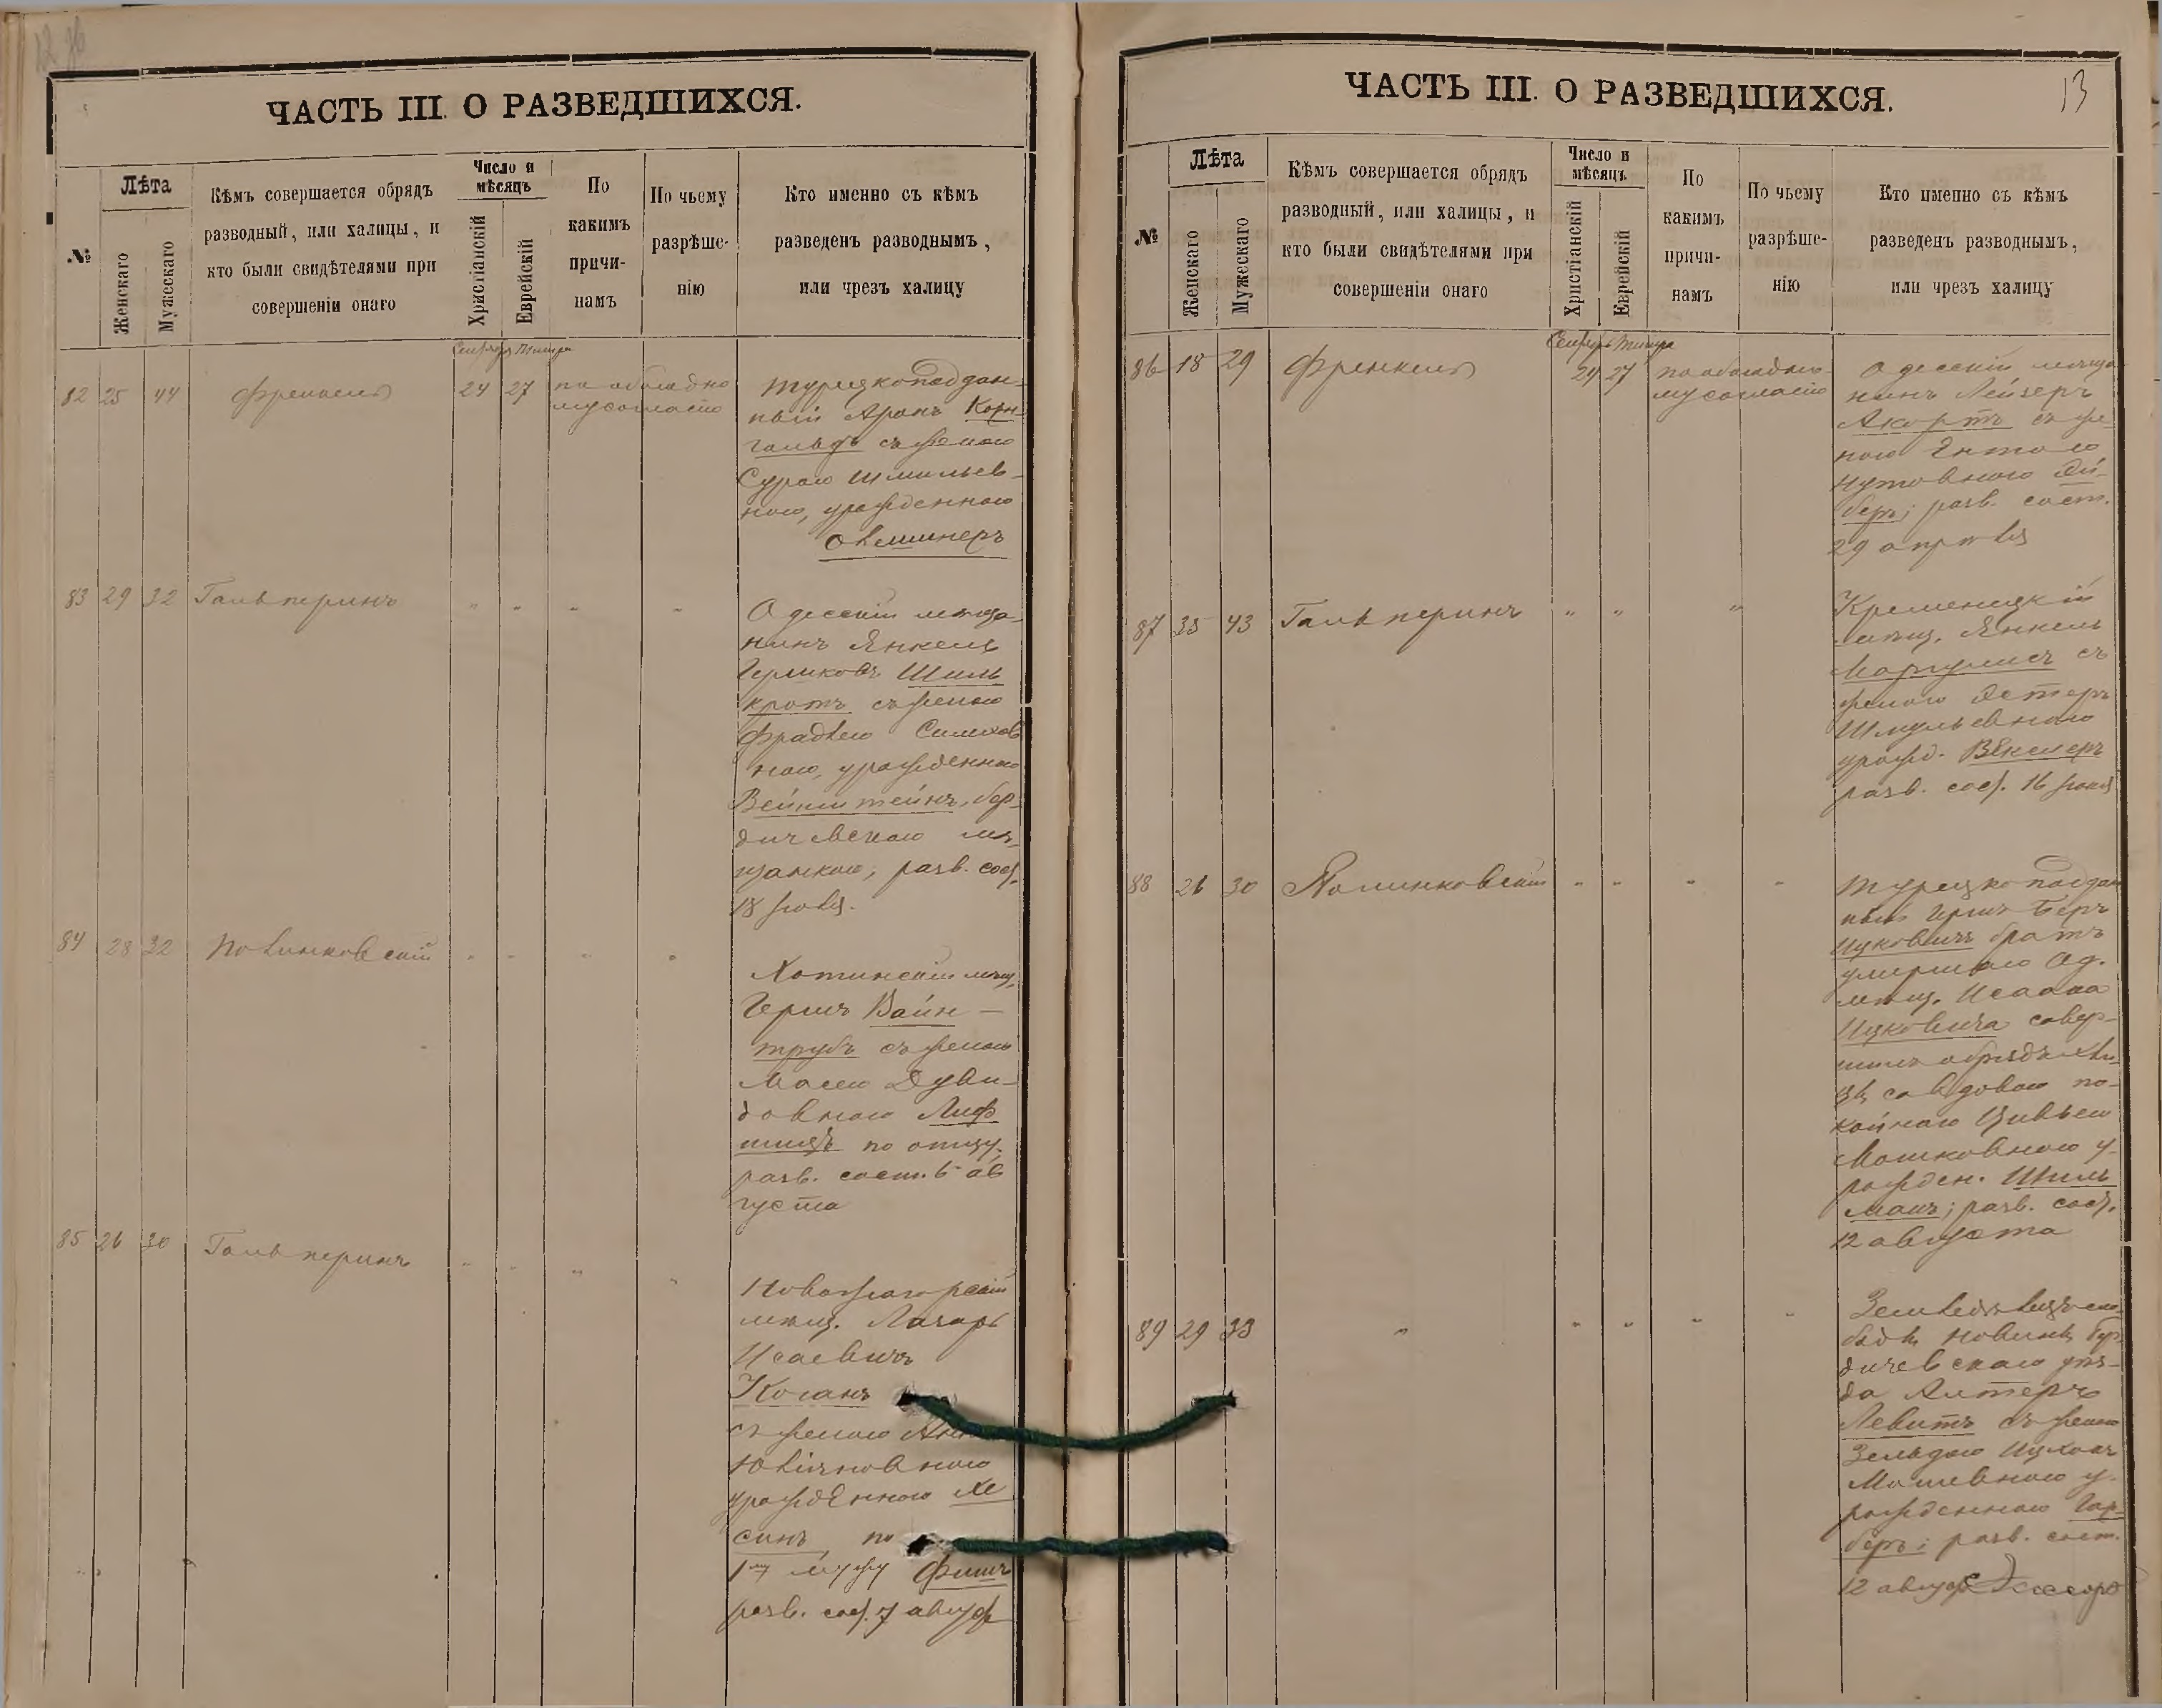 ЧАСТЬ III. О РАЗВЕДШИХСЯ.
№
Лѣта
Женскаго
Мужескаго
Кѣмъ совершается обрядъ
разводный, или халицы, и
кто были свидѣтелями при
совершеніи онаго
Число и
мѣсяцъ
Христіанскій
Еврейскій
По
какимъ
причи-
намъ
По чьему
разрѣше-
нію
Кто именно съ кѣмъ
разведенъ разводнымъ,
или чрезъ халицу
82 25 44 Френкель 24 27 по обоюдно
му согласію
Турецкоподдан-
ный Аронъ Корн-
гольдъ съ женою
Сурою Шмильев-
ною, урожденною
83 29 32 Гальперинъ " " " "
Одесскій мѣща-
нинъ Янкель
Гершковъ Шиль
кротъ съ женою
Фрадею Симхов
ною, урожденною
Вейнштейнъ, бер-
дичевскою мѣ-
щанкою, разв. сост.
18 іюля.
84 28 32 Полинковскій " " " "
Хотинскій мѣщ.
Гершъ Вайн-
трубъ съ женою
Масею Дуви-
довною Лиф
шицъ по отцу,
разв. сост. 6 ав
густа
85 26 30 Гальперинъ " " " "
мѣщ. Лазарь
Исаевичъ
Коганъ
съ женою
урожденною Хе
синъ, по
1му мужу Фишъ
разв. сост. 7 август
ЧАСТЬ III. О РАЗВЕДШИХСЯ.
13
№
Лѣта
Женскаго
Мужескаго
Кѣмъ совершается обрядъ
разводный, или халицы, и
кто были свидѣтелями при
совершеніи онаго
Число и
мѣсяцъ
Христіанскій
Еврейскій
По
какимъ
причи-
намъ
По чьему
разрѣше-
нію
Кто именно съ кѣмъ
разведенъ разводнымъ,
или чрезъ халицу
86 18 29 Френкель 24 27 по обоюдно-
му согласію
Одесскій мѣща
нинъ Лейзеръ
Акортъ съ же
ною Ентою
беръ; разв. сост.
29 апрѣля
87 35 43 Гальперинъ " " "
Кременецкій
мѣщ. Янкель
Маргулисъ съ
женою Эстеръ
Шмульевною
урожд. Векслеръ
разв. сост. 16
88 26 30 Полинковскій " " " "
Турецкоподдан
ный Гершъ Беръ
Ицковичъ братъ
умершаго Од.
мѣщ. Исаака
Ицковича совер-
шилъ обрядъ хали
цы со вдовою по-
койнаго Цивьею
Мошковною у-
рожден. Шиль
манъ; разв. сост.
12 августа
89 29 33 " " " " "
Земледѣлецъ сло
боды
дичевскаго уѣз-
да Алтеръ
Левитъ съ женою
Зельдою
Мошевною у-
рожденною Гар-
беръ; разв. сост.
12 август